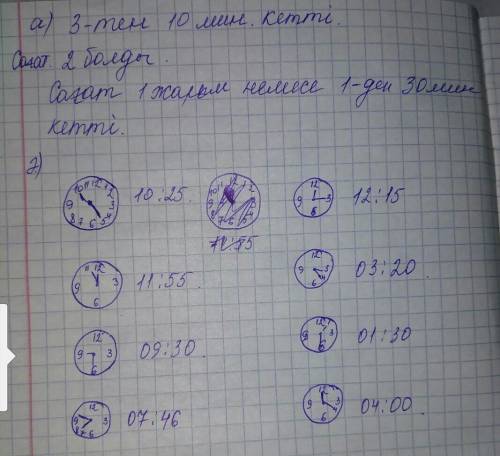 а) 3-тен 10 мин. кетті.
Сағат 2 болды.
Сағат 1 жарым немесе 1-ден 30 мин
кетті.
10:25.
12:15
11:55
03:20
09:30.
01:30
07:46
04:00.